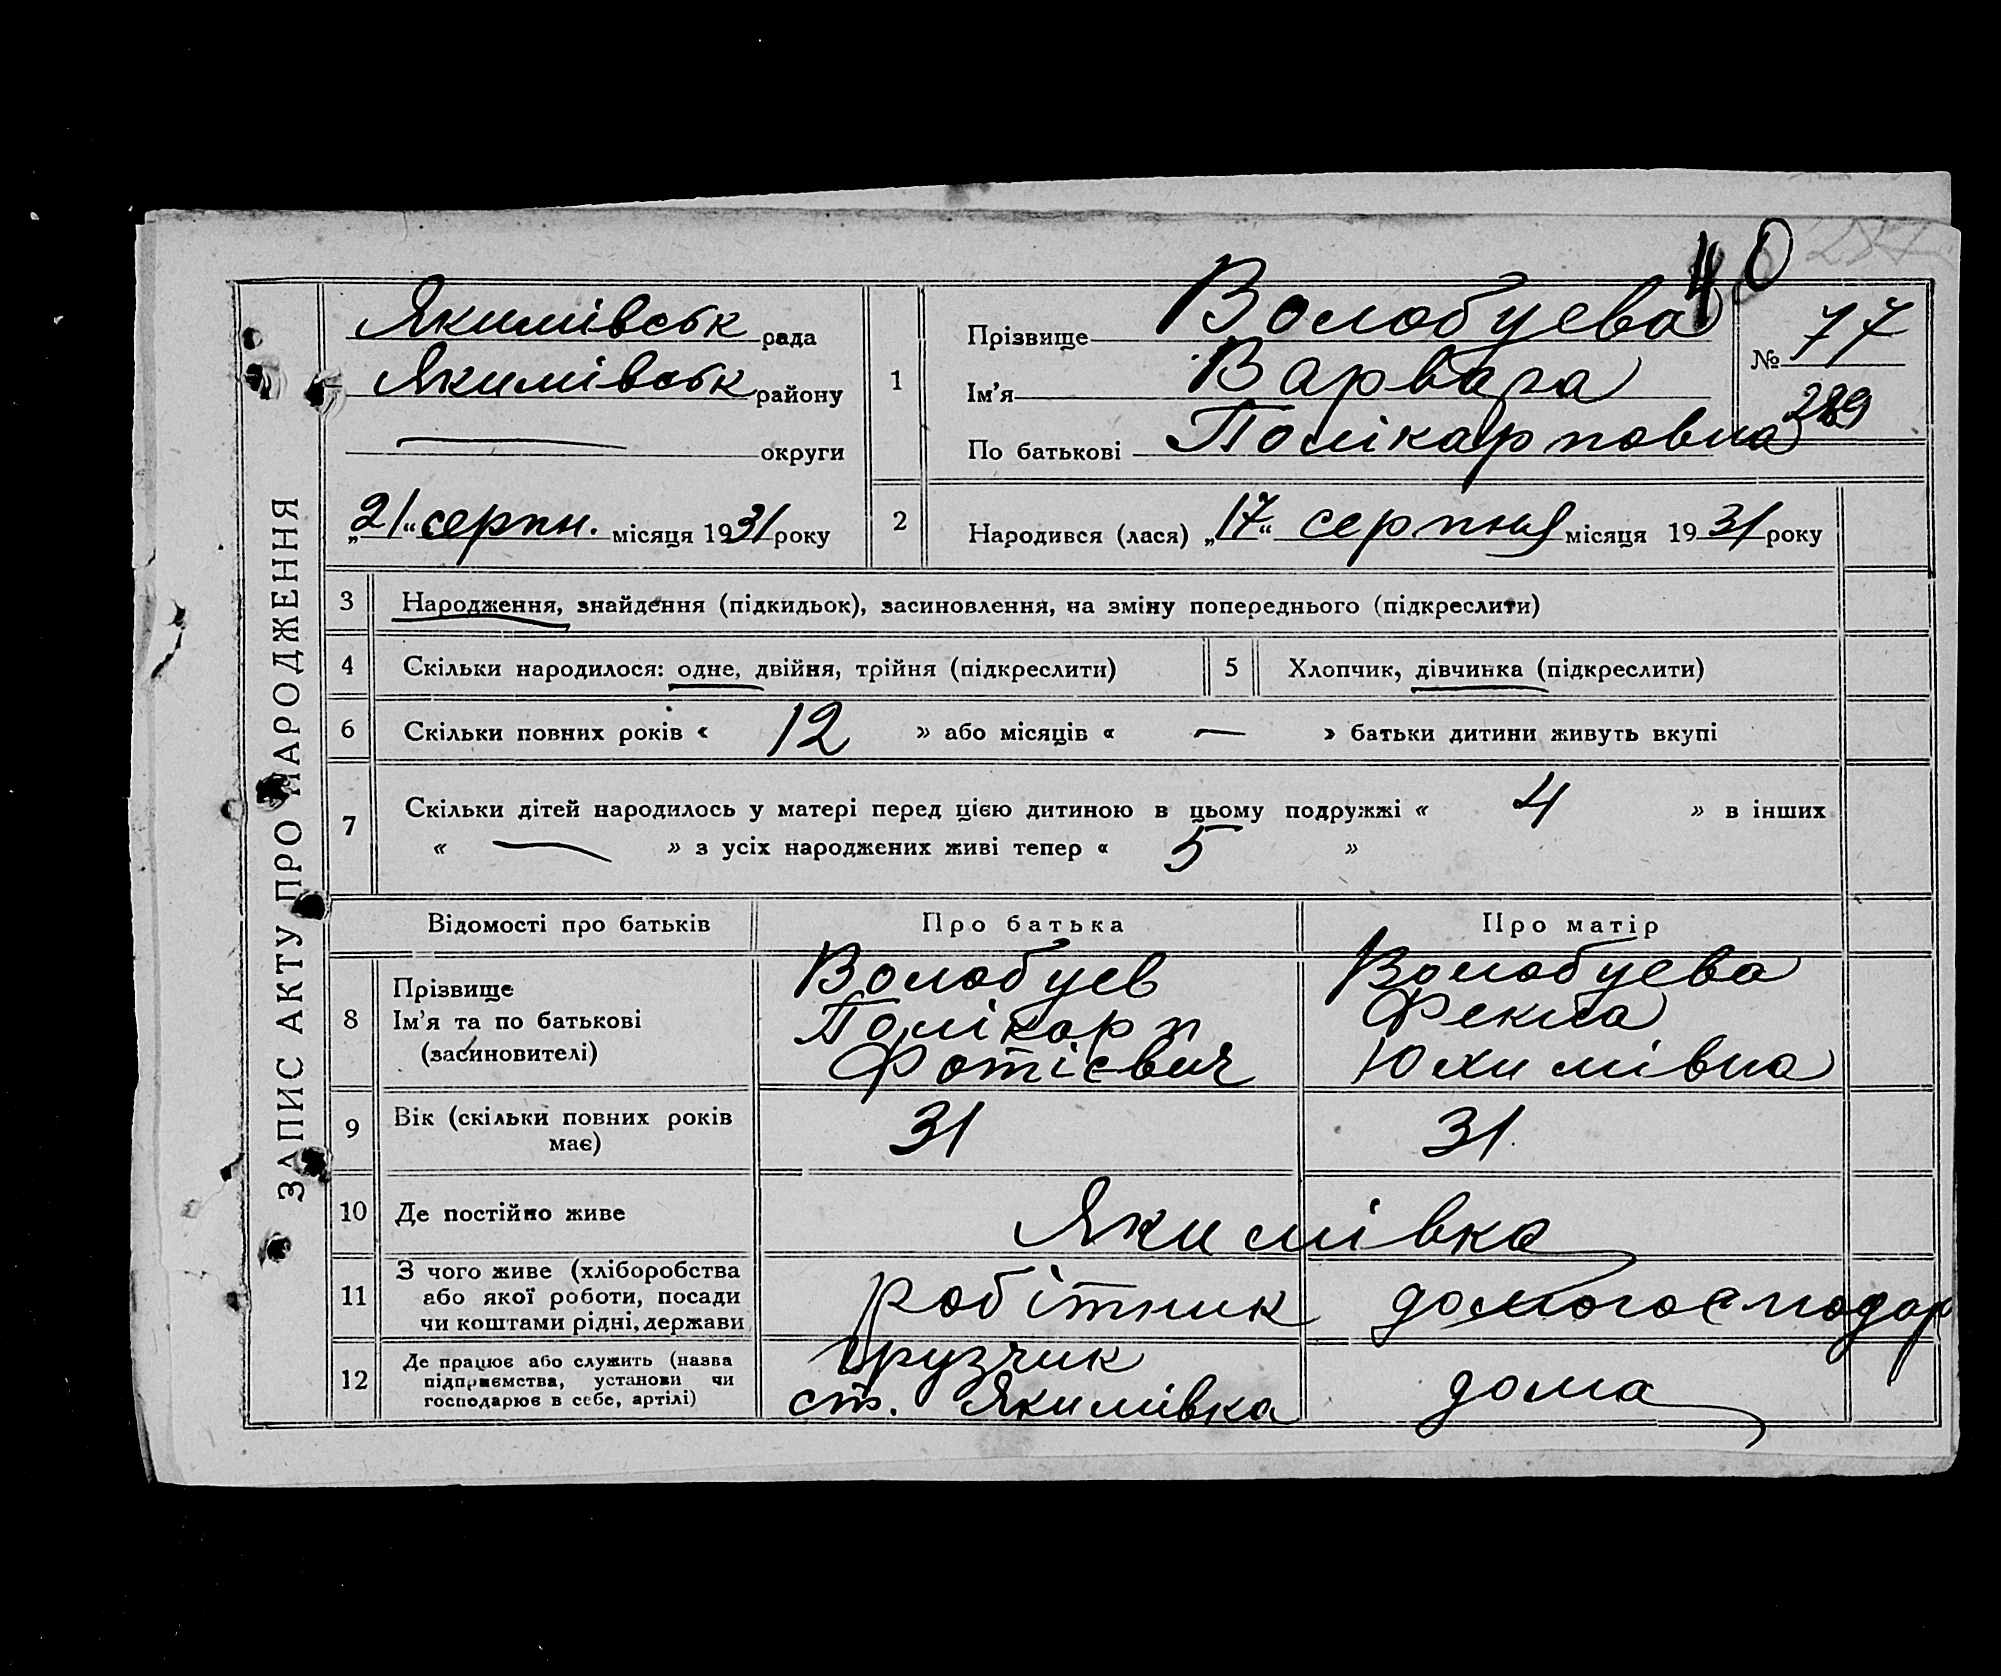 40
ЗАПИС АКТУ ПРО НАРОДЖЕННЯ
Якимівськ рада
Якимівськ району
— округи
„21“ серпн. місяця 1931 року
1
Прізвище Волобуева
Ім’я Варвара
По батькові Полікарповна
№ 77
289
2
Народився (лася) „17“ серпня місяця 1931 року
3 Народження, знайдення (підкидьок), засиновлення, на зміну попереднього (підкреслити)
4 Скільки народилося: одне, двійня, трійня (підкреслити)
5 Хлопчик, дівчинка (підкреслити)
6 Скільки повних років « 12 » або місяців « — » батьки дитини живуть вкупі
7 Скільки дітей народилось у матері перед цією дитиною в цьому подружжі « 4 » в інших
« — » з усіх народжених живі тепер « 5 »
Відомості про батьків Про батька Про матір
8
Прізвище
Ім’я та по батькові
(засиновителі)
Волобуев
Полікарп
Фотієвич
Волобуева
Фекла
Юхимівна
9
Вік (скільки повних років
має)
31
31
10 Де постійно живе Якимівка
11
З чого живе (хліборобства
або якої роботи, посади
чи коштами рідні, держави
робітник
домогосподар
12
Де працює або служить (назва
підприємства, установи чи
господарює в себе, артілі)
грузчик
ст. Якимівка
дома